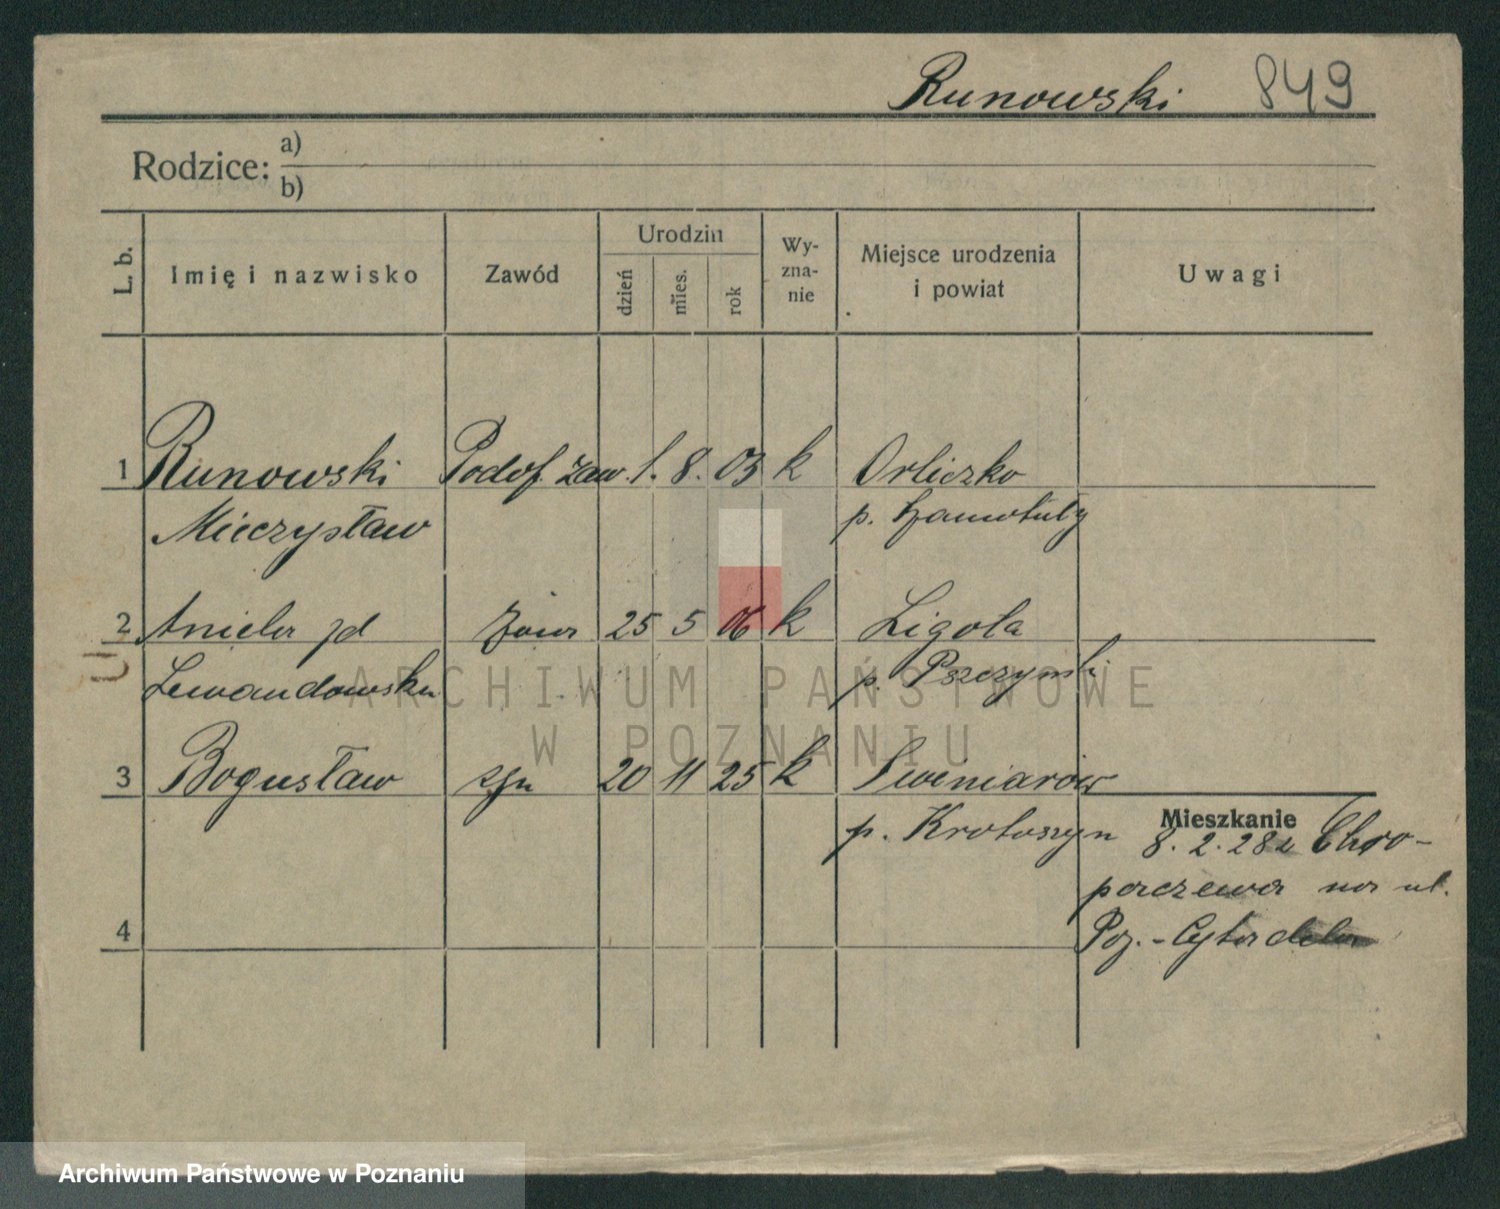 Runowski 849
Rodzice: a)
b)
L. b.
Imię i nazwisko
Zawód
Urodzin
dzień
mies.
rok
Wy-
zna-
nie
Miejsce urodzenia
i powiat
Uwagi
1 Runowski Podof. zaw. 1. 8. 03 k Orliczko
Mieczysław p. Szamotuły
2 Aniela zd żona 25 5 06 k Ligota
Lewandowska p. Pszczyński
3 Bogusław syn 20 11 25 k
p. Krotoszyn
Mieszkanie
8. 2. 28 z Chro-
paczewa na ul.
Poz. - Cytadela
4
ARCHIWUM PAŃSTWOWE
W POZNANIU
Archiwum Państwowe w Poznaniu